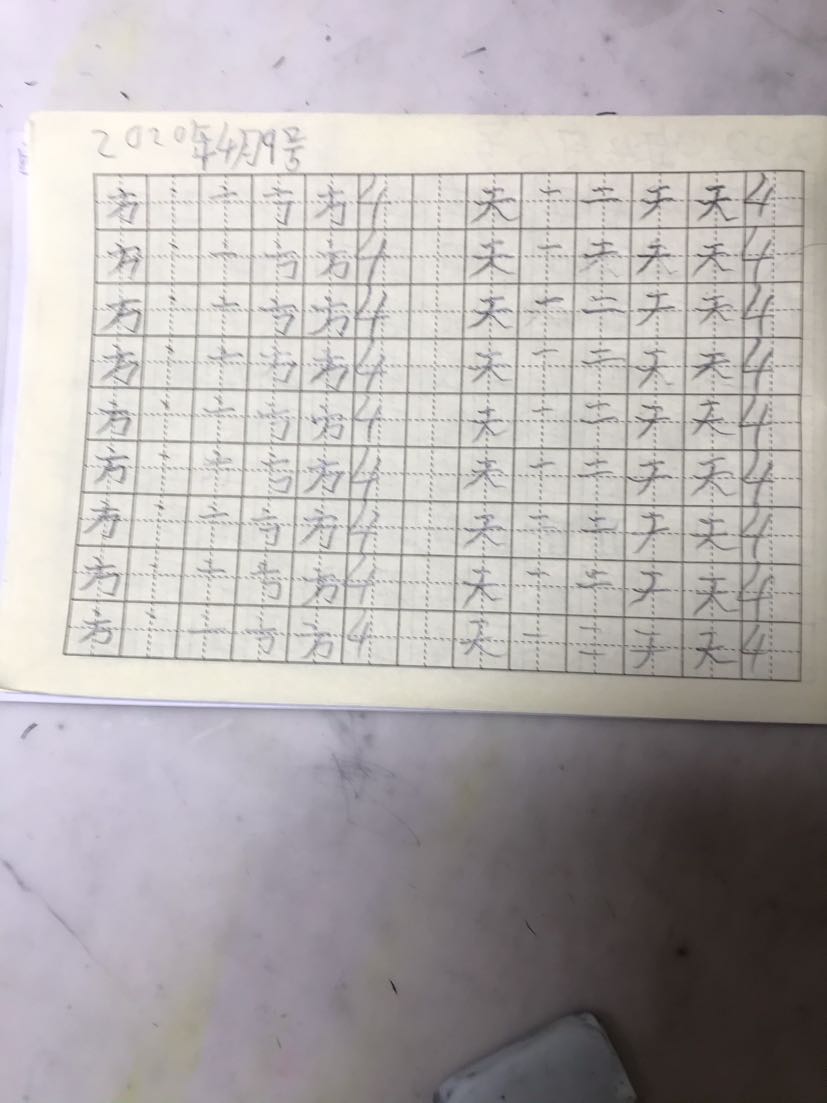 2020年4月9号
方 丶 亠 亍 方 4 天 一 二 チ 天 4
方 丶 亠 亍 方 4 天 一 天 天 天 4
方 丶 亠 亍 方 4 天 一 二 チ 天 4
方 丶 亠 亍 方 4 天 一 二 天 天 4
方 丶 亠 亍 方 4 天 一 二 チ 天 4
方 丶 亠 亍 方 4 天 一 二 チ 天 4
方 丶 亠 亍 方 4 天 一 二 チ 天 4
方 丶 亠 亍 方 4 天 一 二 チ 天 4
方 丶 亠 亍 方 4 天 一 二 チ 天 4